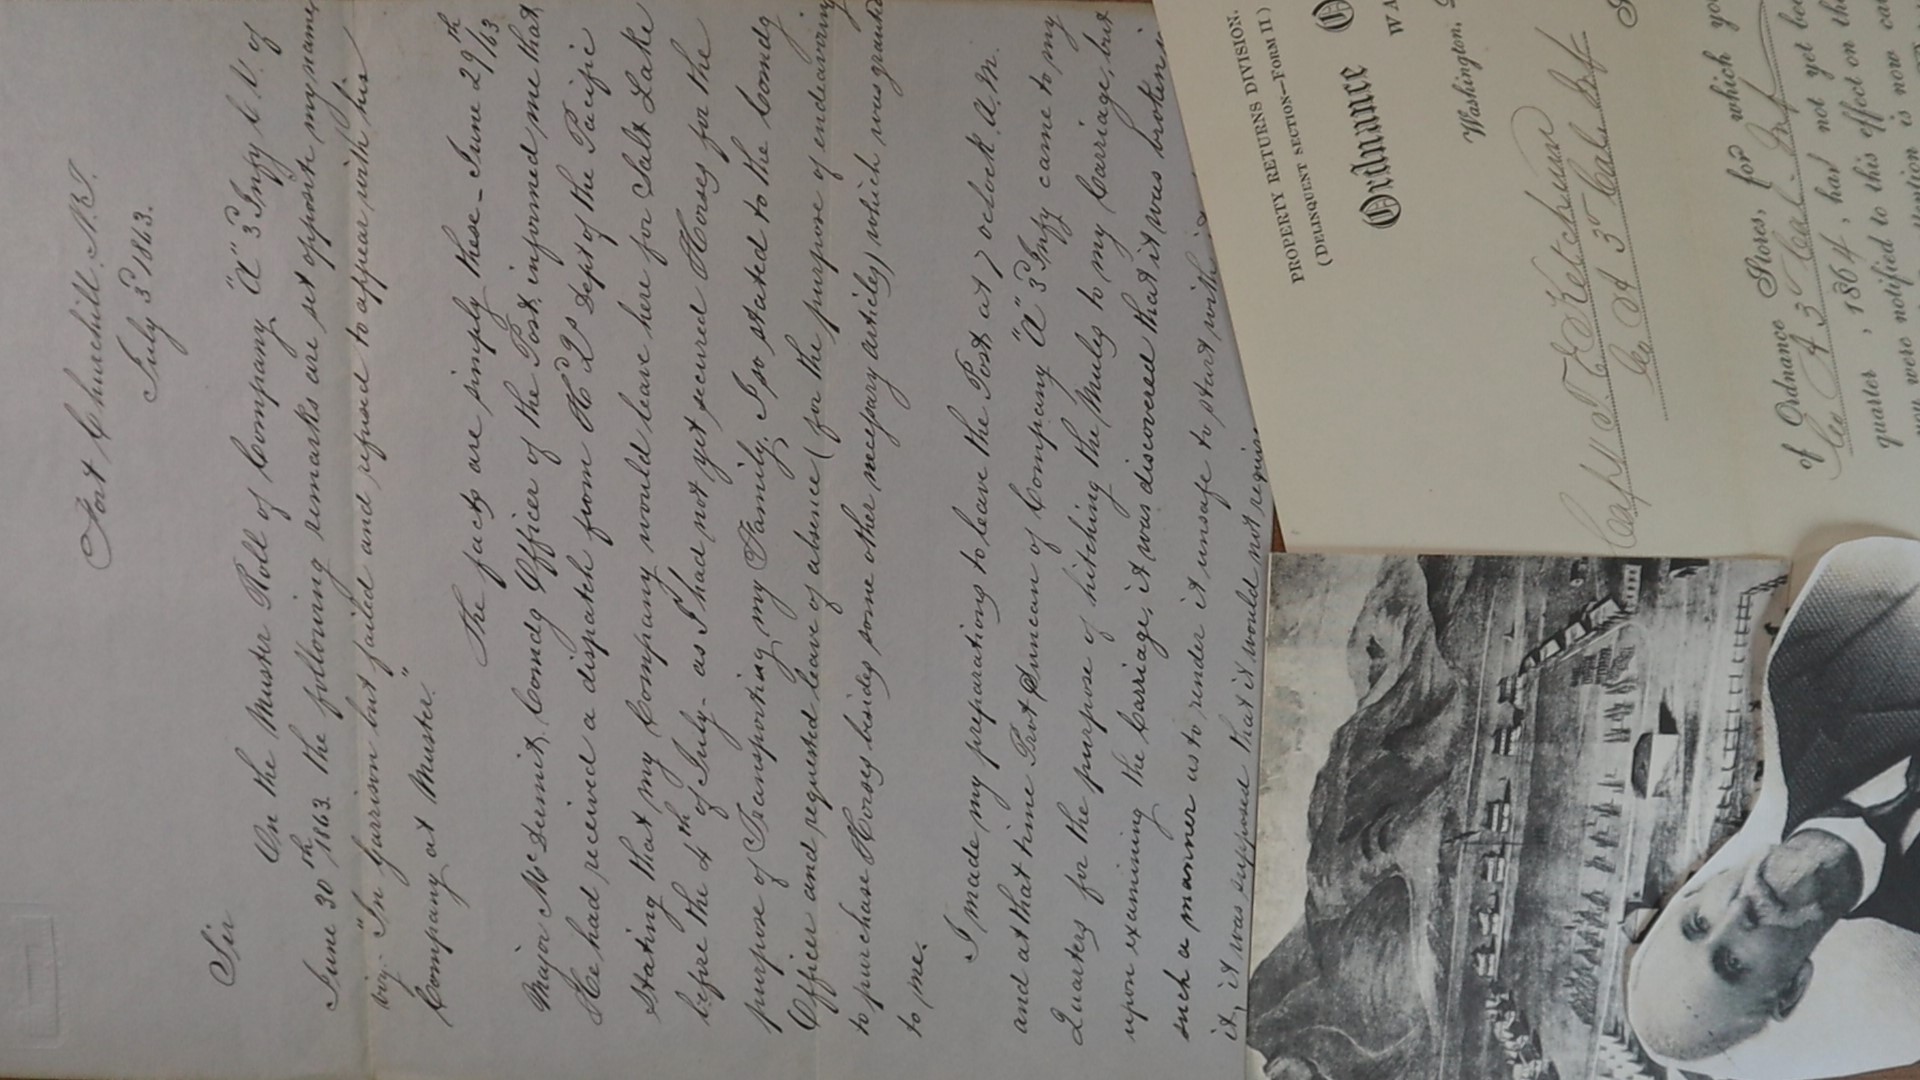 Fort Churchill. N.T.
July 3d 1863.
Sir
On the Muster Roll of Company "A" 3d Infy C.V. of
June 30th 1863. the following remarks are set opposite my name
viz: "In Garrison but failed and refused to appear with his
Company at Muster."
The facts are simply these - June 29th/63
Major McDermit, Comdg Officer of the Post, informed me that
He had received a dispatch from Hd Qrs Dept of the Pacific
stating that my Company would leave here for Salt Lake
before the 4th of July - as I had not yet secured Horses for the
purpose of Transporting my Family, I so stated to the Comdg
Officer and requested leave of absence (for the purpose of endeavoring
to purchase Horses besides some other necessary articles) which was granted
to me.
I made my preparations to leave the Post at 7 oclock A.M.
and at that time Pvt Duncan of Company "A" 3d Infy came to my
Quarters for the purpose of hitching the Mules to my Carriage, but
upon examining the Carriage, it was discovered that it was broken in
such a manner as to render it unsafe to start with
it, it was supposed that it would not require
PROPERTY RETURNS DIVISION.
(DELINQUENT SECTION—FORM II)
Ordnance O
WA
Washington,
Capt T. E. Ketchum
Co A 3d Cala Inf
of Ordnance Stores, for which you
Co A 3d Cal. Inf
quarter , 1864 , has not yet bee
you were notified to this effect on the
attention is now cal